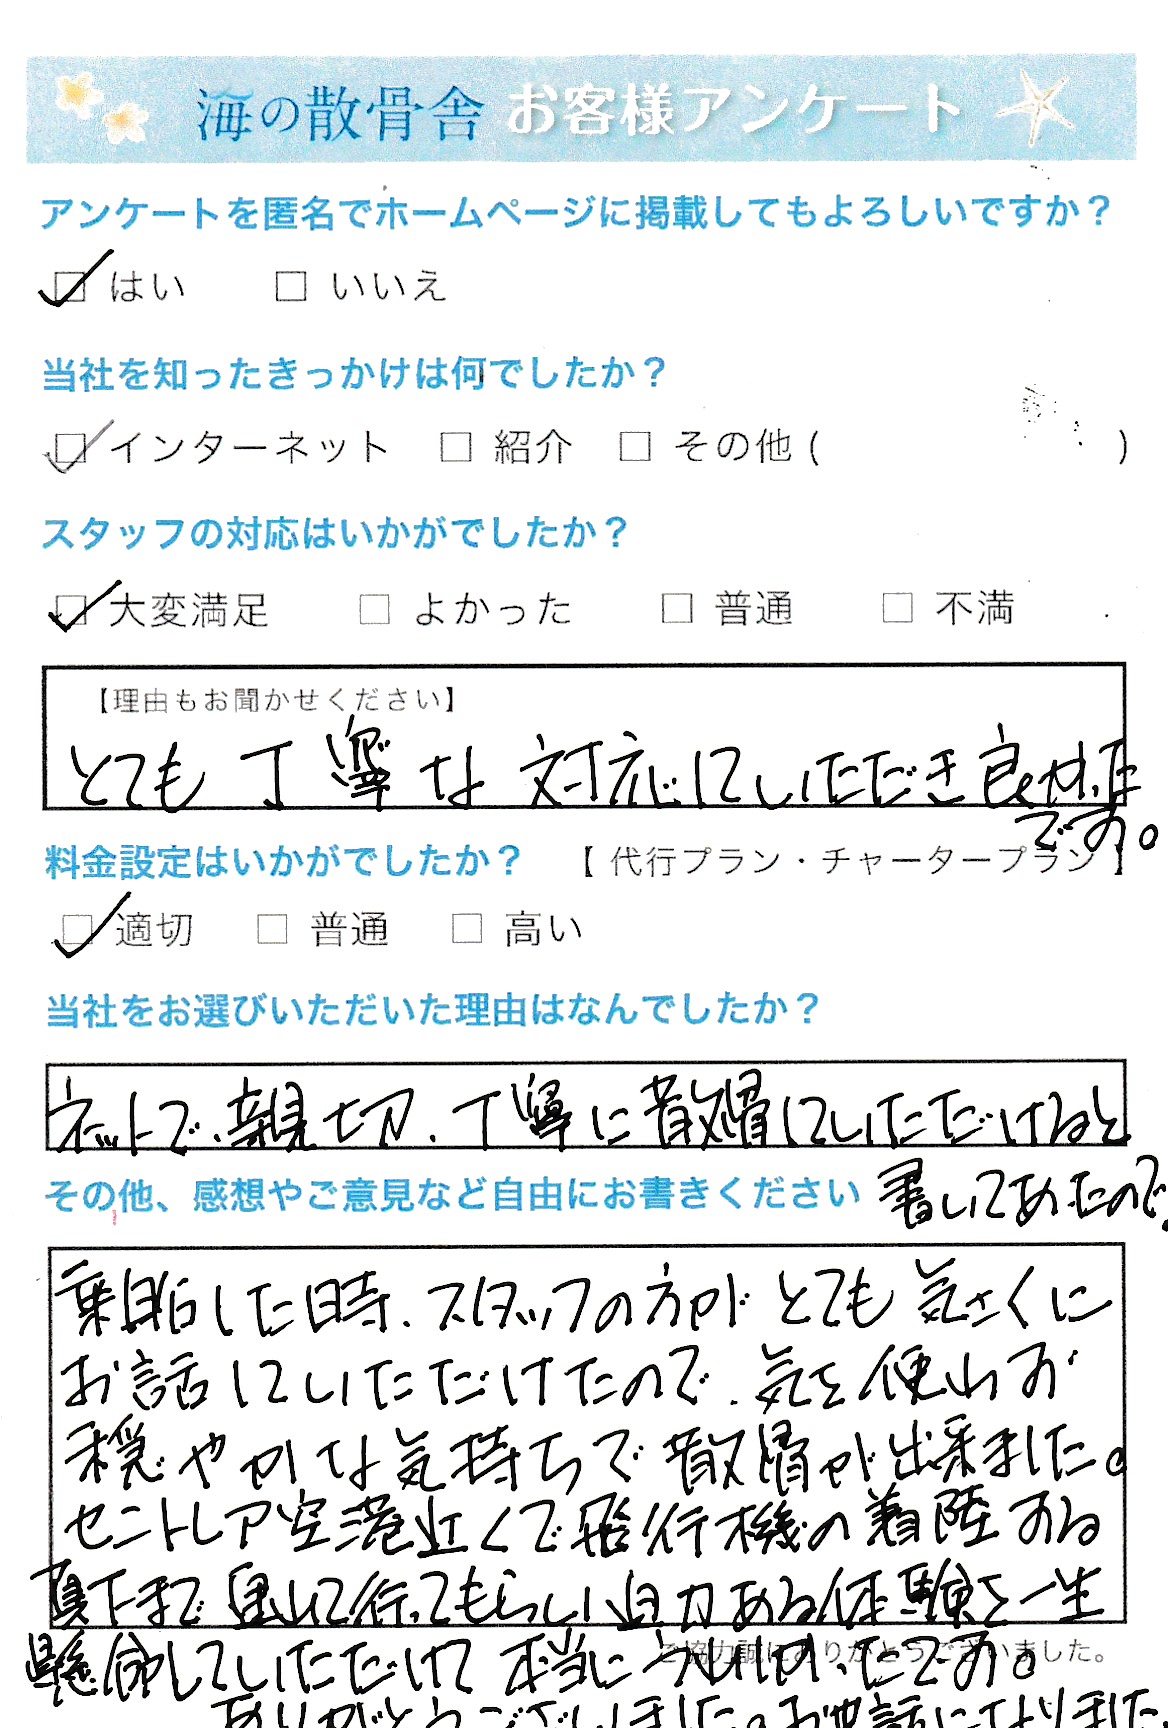 海の散骨舎 お客様アンケート
アンケートを匿名でホームページに掲載してもよろしいですか？
はい いいえ
当社を知ったきっかけは何でしたか？
インターネット 紹介 その他 ( )
スタッフの対応はいかがでしたか？
大変満足 よかった 普通 不満
【理由もお聞かせください】
とても丁寧な対応していただき良かった
です。
料金設定はいかがでしたか？ 【 代行プラン・チャータープラン 】
適切 普通 高い
当社をお選びいただいた理由はなんでしたか？
ネットで、親切、丁寧に散骨していただけると
その他、感想やご意見など自由にお書きください 書いてあったので、
乗船した時、スタッフの方がとても気さくに
お話していただけたので、気を使わず
穏やかな気持ちで散骨が出来ました。
セントレア空港近くで飛行機の着陸する
真下まで船出して行ってもらい迫力ある体験を一生
懸命していただけて本当にうれしかったです。
ご協力誠にありがとうございました。
ありがとうございました。お世話になりました。